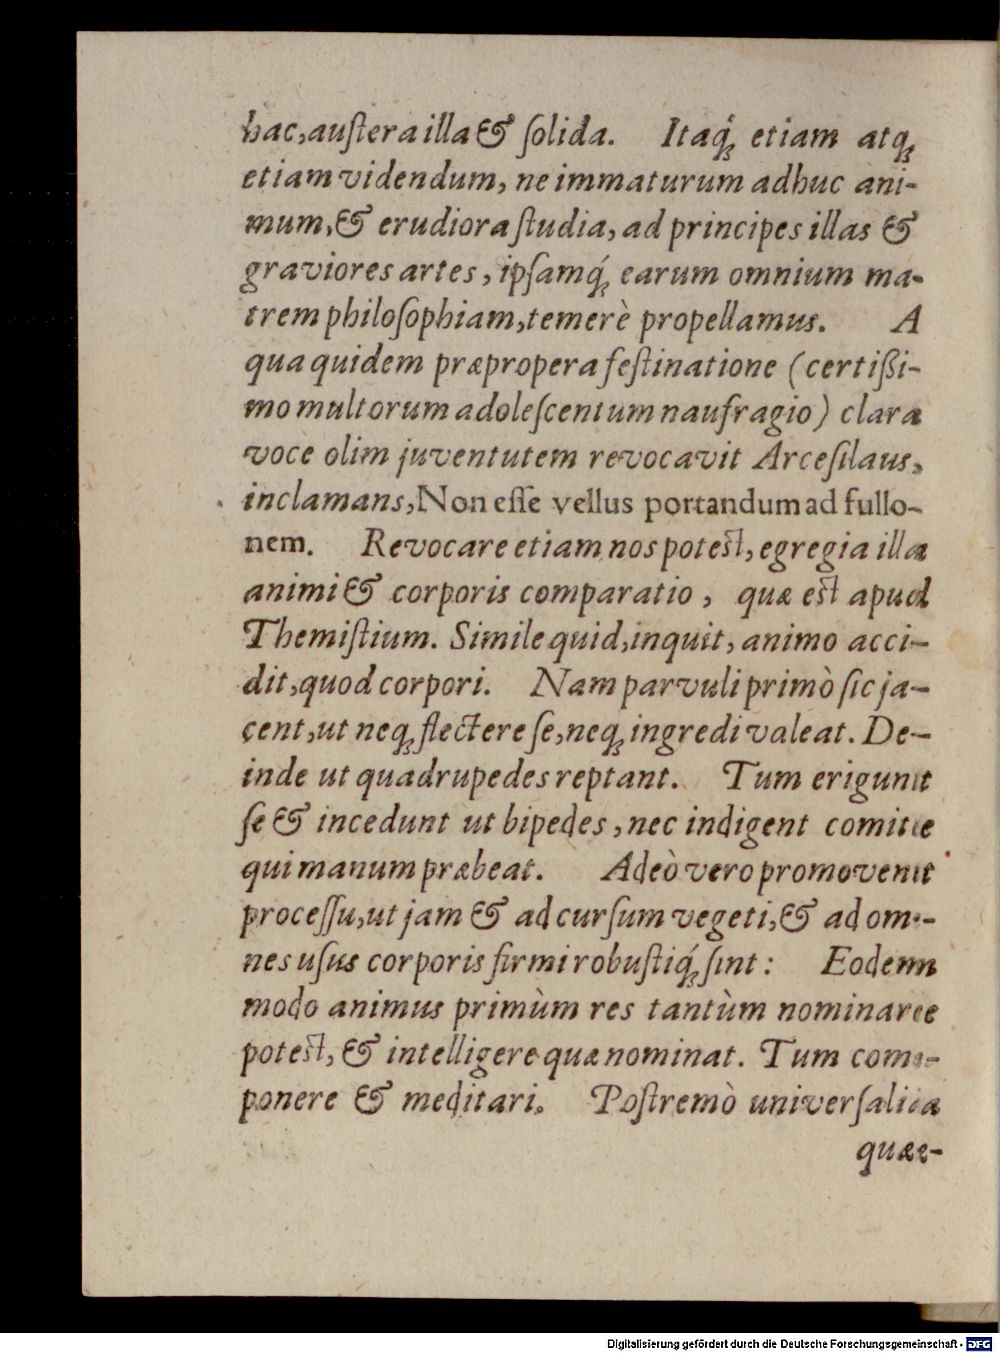 hac, auſtera illa & ſolida. Itaq́; etiam atq;
etiam videndum, ne immaturum adhuc ani-
mum, & erudiora ſtudia, ad principes illas &
graviores artes, ipſamq́; earum omnium ma-
trem philoſophiam, temerè propellamus. A
qua quidem præpropera feſtinatione (certißi-
mo multorum adoleſcentum naufragio) clara
voce olim juventutem revocavit Arceſilaus,
inclamans, Non eſſe vellus portandum ad fullo-
nem. Revocare etiam nos poteſt, egregia illa
animi & corporis comparatio, quæ eſt apud
Themiſtium. Simile quid, inquit, animo acci-
dit, quod corpori. Nam parvuli primò ſic ja-
cent, ut neq; flectere ſe, neq; ingredi valeat. De-
inde ut quadrupedes reptant. Tum erigunt
ſe & incedunt ut bipedes, nec indigent comite
qui manum præbeat. Adeò vero promovent
proceſſu, ut jam & ad curſum vegeti, & ad om-
nes uſus corporis firmi robuſtiq́; ſint: Eodem
modo animus primùm res tantùm nominare
poteſt, & intelligere quæ nominat. Tum com-
ponere & meditari. Poſtremò univerſalia
quæ-
Digitalisierung gefördert durch die Deutsche Forschungsgemeinschaft - DFG